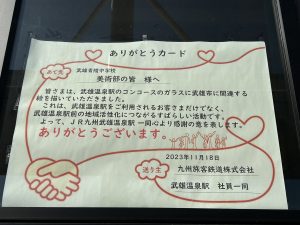 ありがとうカード
あて先
武雄青陵中学校
美術部の皆 様へ
皆さまは、武雄温泉駅のコンコースのガラスに武雄市に関連する
絵を描いていただきました。
これは、武雄温泉駅をご利用されるお客さまだけでなく、
武雄温泉駅前の地域活性化につながるすばらしい活動です。
よって、JR九州武雄温泉駅一同より感謝の意を表します。
ありがとうございます。
2023年11月18日
送り主
九州旅客鉄道株式会社
武雄温泉駅 社員一同